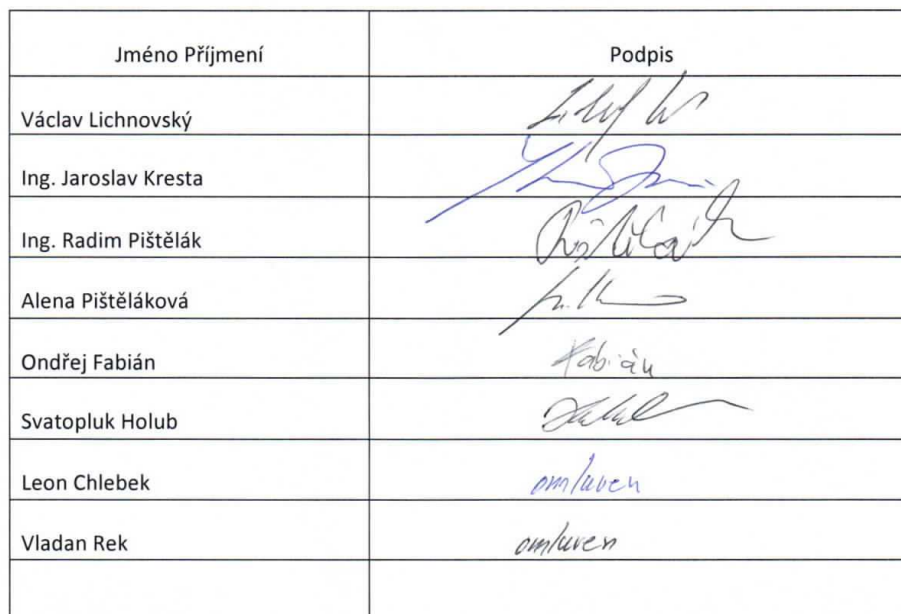 Jméno Příjmení Podpis
Václav Lichnovský
Ing. Jaroslav Kresta
Ing. Radim Pištělák
Alena Pištěláková
Ondřej Fabián Fabián
Svatopluk Holub
Leon Chlebek omluven
Vladan Rek omluven